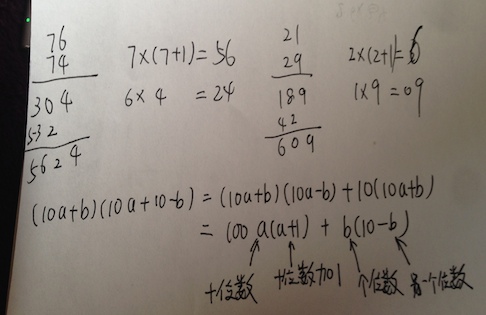 76
74
304
532
5624
7×(7+1)=56
6×4 =24
21
29
189
42
609
2×(2+1)=6
1×9=09
(10a+b)(10a+10-b) = (10a+b)(10a-b)+10(10a+b)
= 100a(a+1) + b(10-b)
十位数 十位数加1 个位数 另一个位数